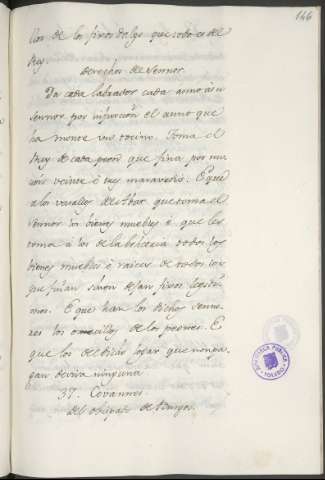 146
llos de los fijos dalgo que todo es del
Rey.
Derechos del Sennor.
Da cada labrador cada anno a su
sennor por infurcion el anno que
ha monte un tocino. Toma el
Rey de cada peon que fina por nu
cion veinte è tres maravedis. E que
a los vasallos del Abat que toma el
sennor los bienes muebles è que les
toma à los de la todos los
bienes muebles è raices de todos los
que finan si non dejan fijos legiti
mos. E que han los dichos senno
res los omecillos de los peones. E
que los del dicho logar que non pa
gan devisa ninguna
37. Covannes
del obispado de Burgos.
BIBLIOTECA PUBLICA
TOLEDO